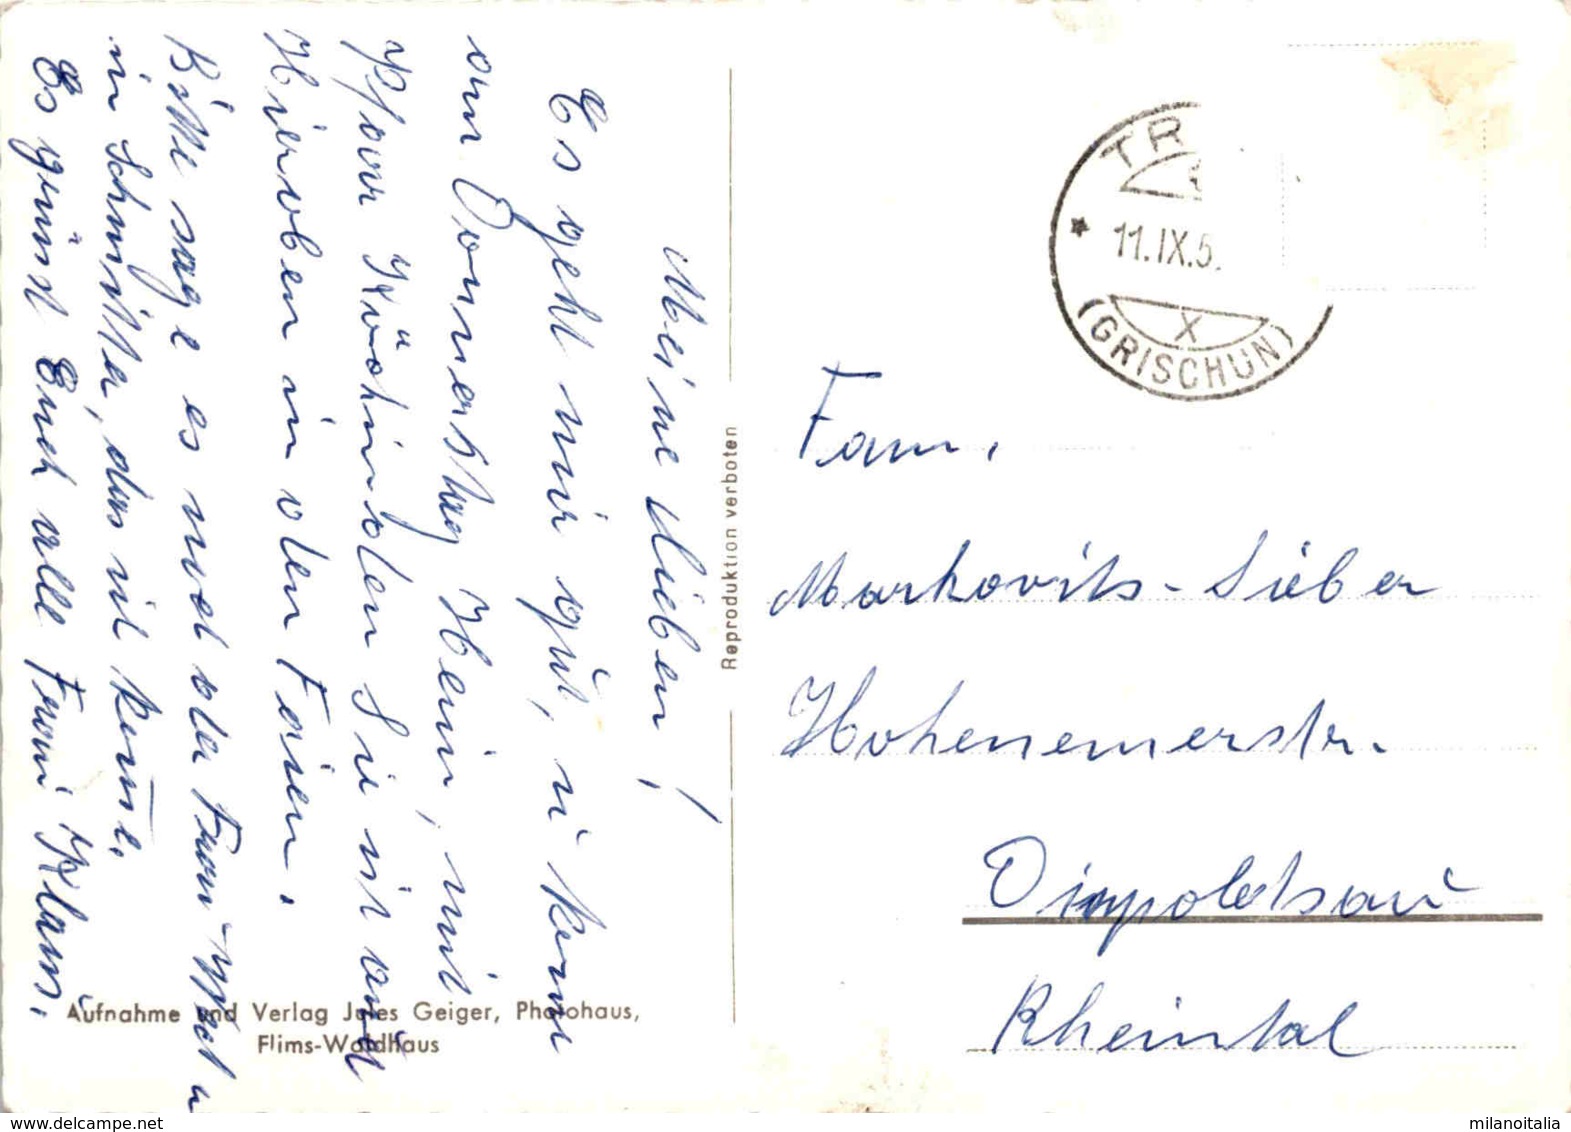 Meine Lieben!
Es geht mir gut, i kom
am Donnerstag Heim, mit
Pfarr Sie ist auch
Hieroben in den Faien.
Bitte sage es noch der Frau
in Schmitta, das ich komme.
Es grüsst Euch alle Frani Klaus.
Aufnahme und Verlag Jules Geiger, Photohaus,
Flims-Waldhaus
Reproduktion verboten
TR
11.IX.5.
X
(GRISCHUN)
Fam.
Markovits-Sieber
Hohenemerstr.
Diepoldsau
Rheintal
milanoitalia